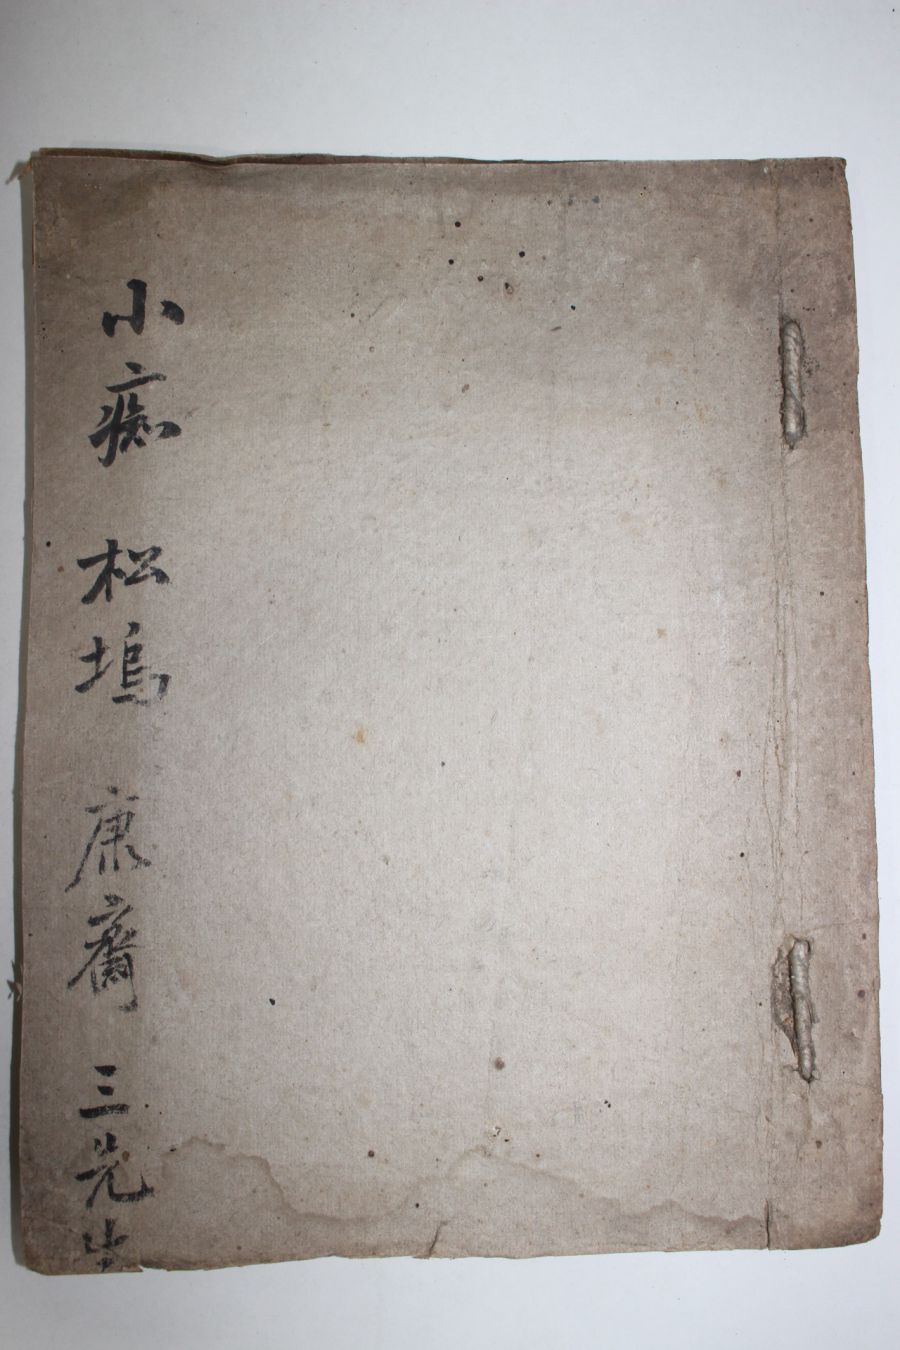 小痴 松塢 康齋 三先生